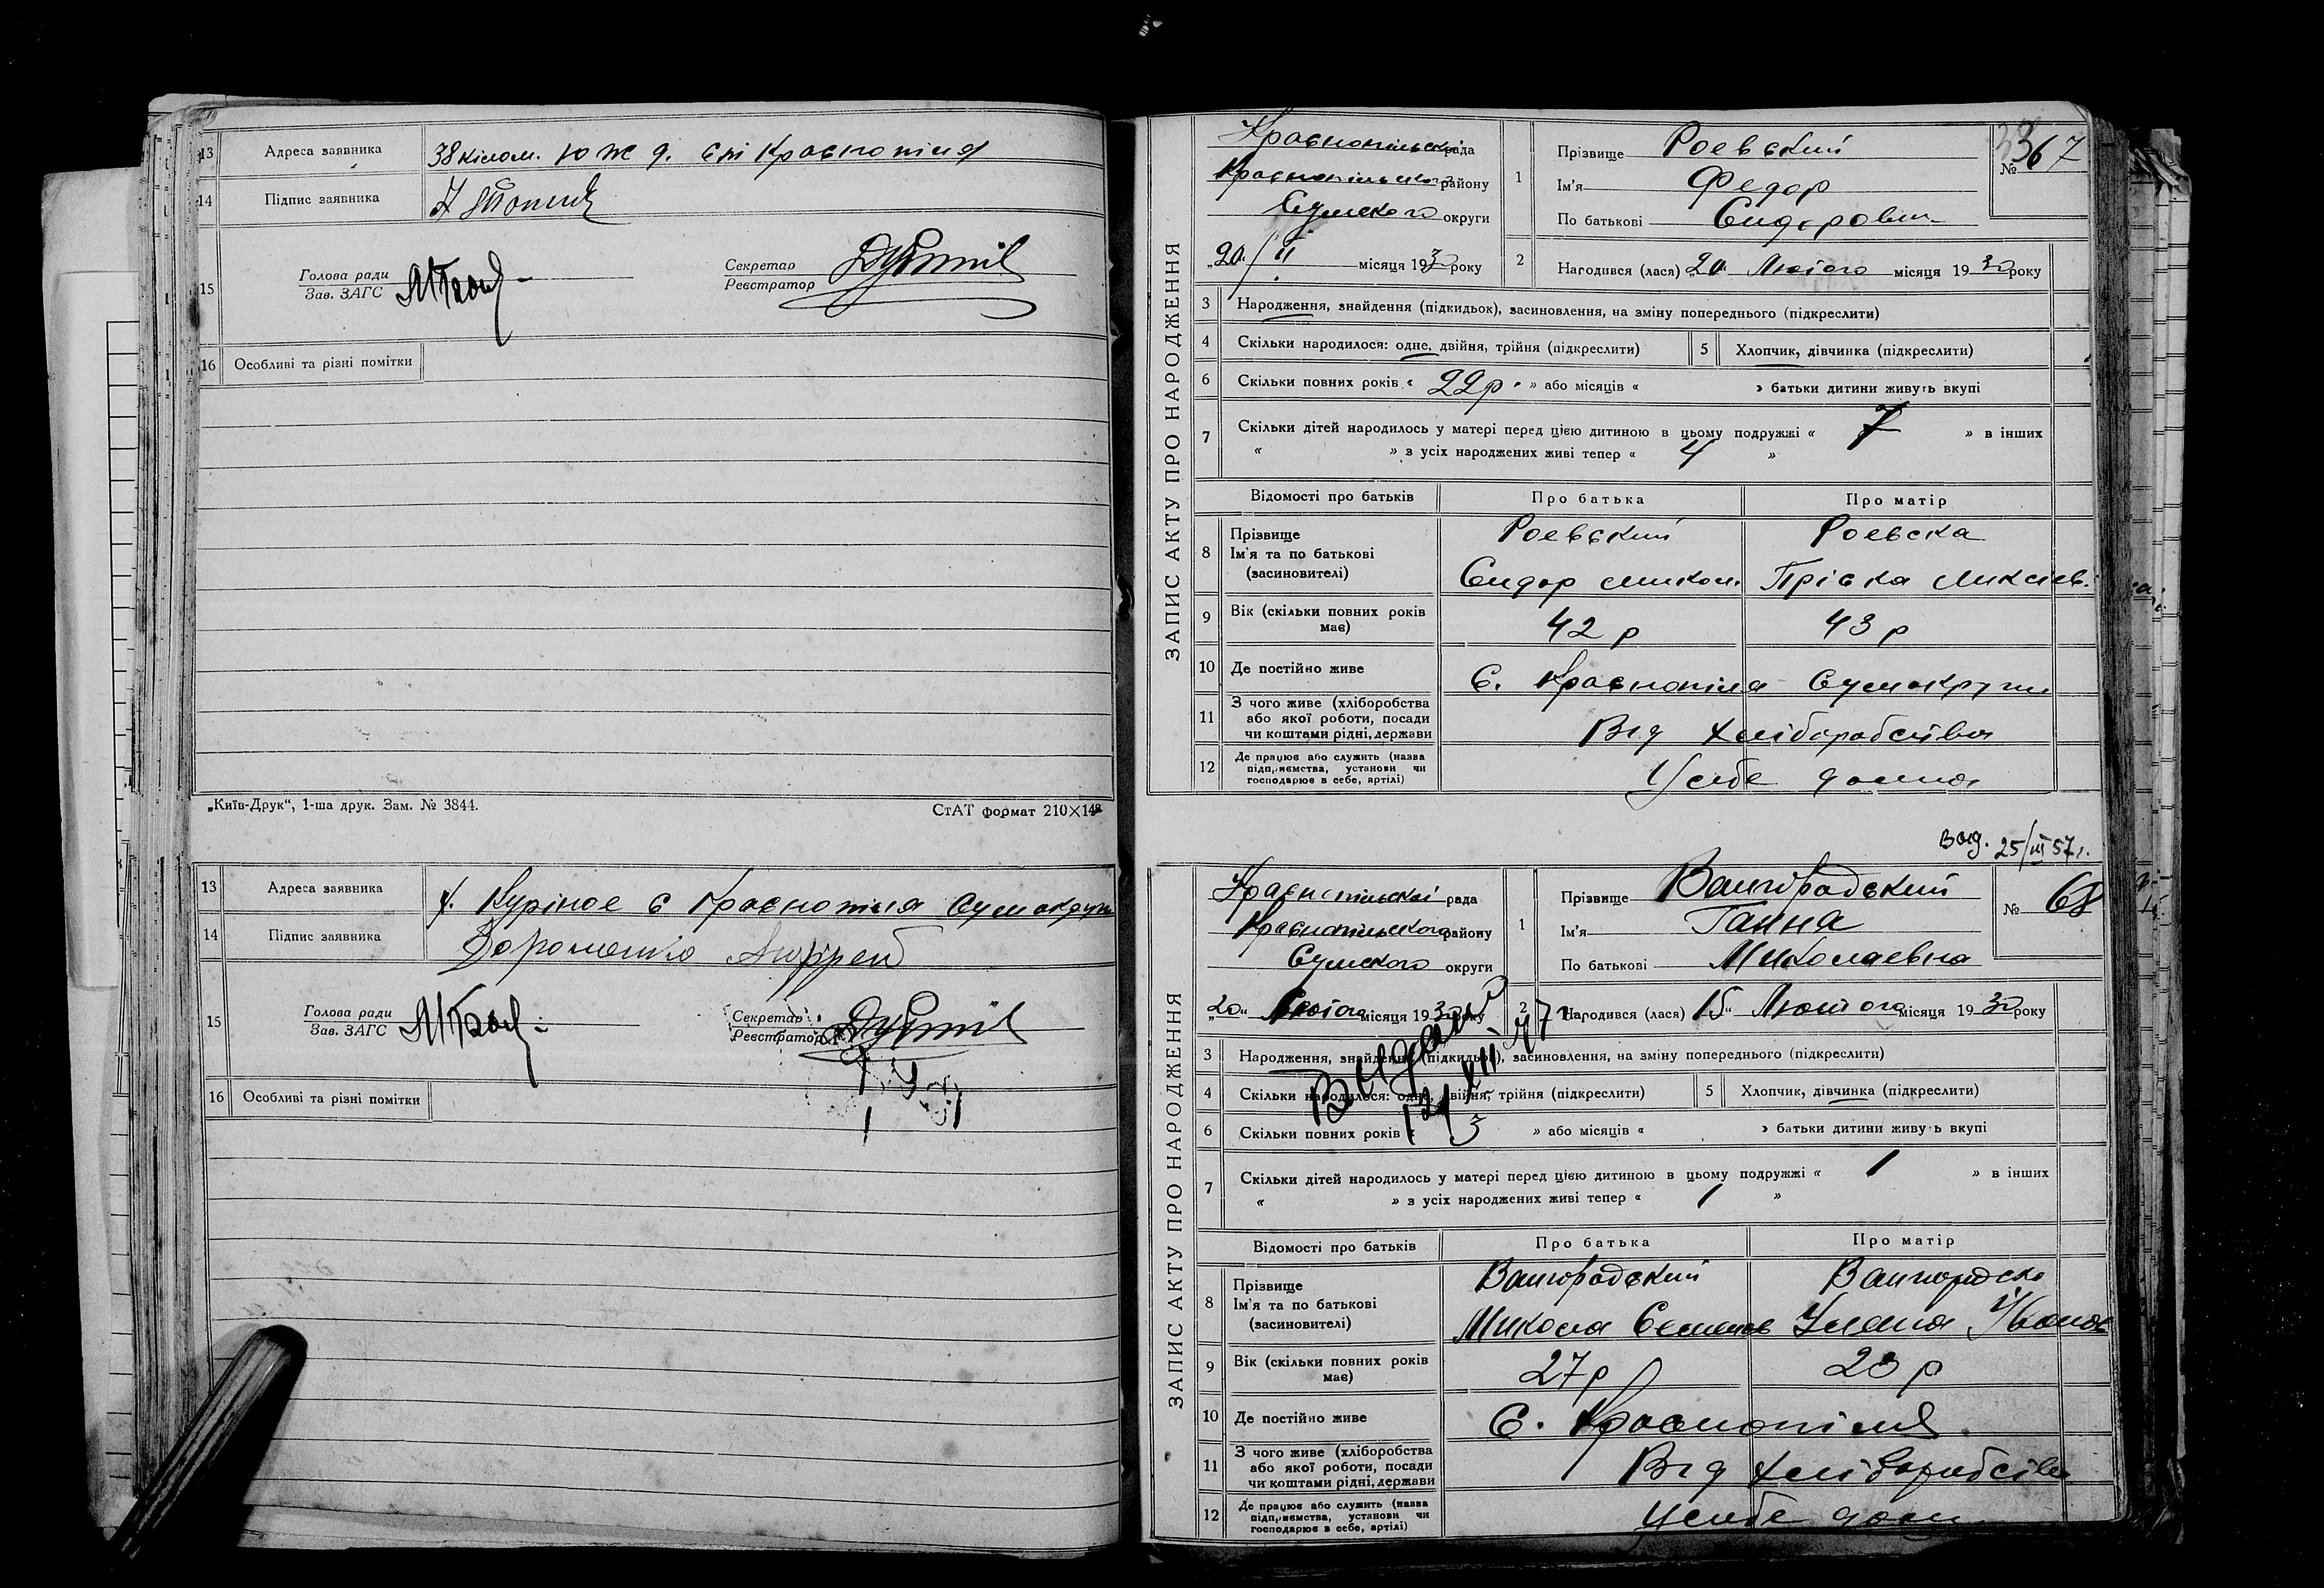 13 Адреса заявника 38 кілом. Ю Ж д. ст Краснопілля
14 Підпис заявника
15 Голова ради
Зав. ЗАГС
Секретар
Реєстратор
16 Особливі та різні помітки
„Київ-Друк“, 1-ша друк. Зам. № 3844. СтАТ формат 210×148
13 Адреса заявника х. Куріное с Краснопілля Сумокруги
14 Підпис заявника Дорошенко Андрей
15 Голова ради
Зав. ЗАГС
Секретар
Реєстратор
16 Особливі та різні помітки
ЗАПИС АКТУ ПРО НАРОДЖЕННЯ
Краснопільскої рада
Краснопільского району
Сумского округи
„20 / II місяця 1930 року
1 Прізвище Роевский
Ім'я Федор
По батькові Сидорович
№ 67
2 Народився (лася) „20 Лютого місяця 1930 року
3 Народження, знайдення (підкидьок), засиновлення, на зміну попереднього (підкреслити)
4 Скільки народилося: одне, двійня, трійня (підкреслити) 5 Хлопчик, дівчинка (підкреслити)
6 Скільки повних років « 22 р. » або місяців « » батьки дитини живуть вкупі
7 Скільки дітей народилось у матері перед цією дитиною в цьому подружжі « 7 » в інших
« » з усіх народжених живі тепер « 4 »
Відомості про батьків Про батька Про матір
8 Прізвище Роевский Роевска
Ім'я та по батькові
(засиновителі) Сидор Микол. Пріська Аликсіев.
9 Вік (скільки повних років має) 42 р 43 р
10 Де постійно живе С. Краснопілля Сумокруги
11 З чого живе (хліборобства
або якої роботи, посади
чи коштами рідні, держави Від хліборобства
12 Де працює або служить (назва
підприємства, установи чи
господарює в себе, артілі) У себе дома
Выд. 25/III 57 г.
ЗАПИС АКТУ ПРО НАРОДЖЕННЯ
Краснопільскої рада
Краснопільского району
Сумского округи
„20“ Лютого місяця 1930 року
1 Прізвище
Ім'я Ганна
По батькові Миколаевна
№ 68
2 Народився (лася) 15“ Лютого місяця 1930 року
Выдан
3 Народження, знайдення (підкидьок), засиновлення, на зміну попереднього (підкреслити)
4 Скільки народилося: одне, двійня, трійня (підкреслити) 5 Хлопчик, дівчинка (підкреслити)
6 Скільки повних років « 3 » або місяців « » батьки дитини живуть вкупі
7 Скільки дітей народилось у матері перед цією дитиною в цьому подружжі « 1 » в інших
« » з усіх народжених живі тепер « 1 »
Відомості про батьків Про батька Про матір
8 Прізвище
Ім'я та по батькові
(засиновителі) Микола Уляна Иванов
9 Вік (скільки повних років має) 27 р 20 р
10 Де постійно живе С. Краснопілля
11 З чого живе (хліборобства
або якої роботи, посади
чи коштами рідні, держави Від хліборобства
12 Де працює або служить (назва
підприємства, установи чи
господарює в себе, артілі) У себе дома